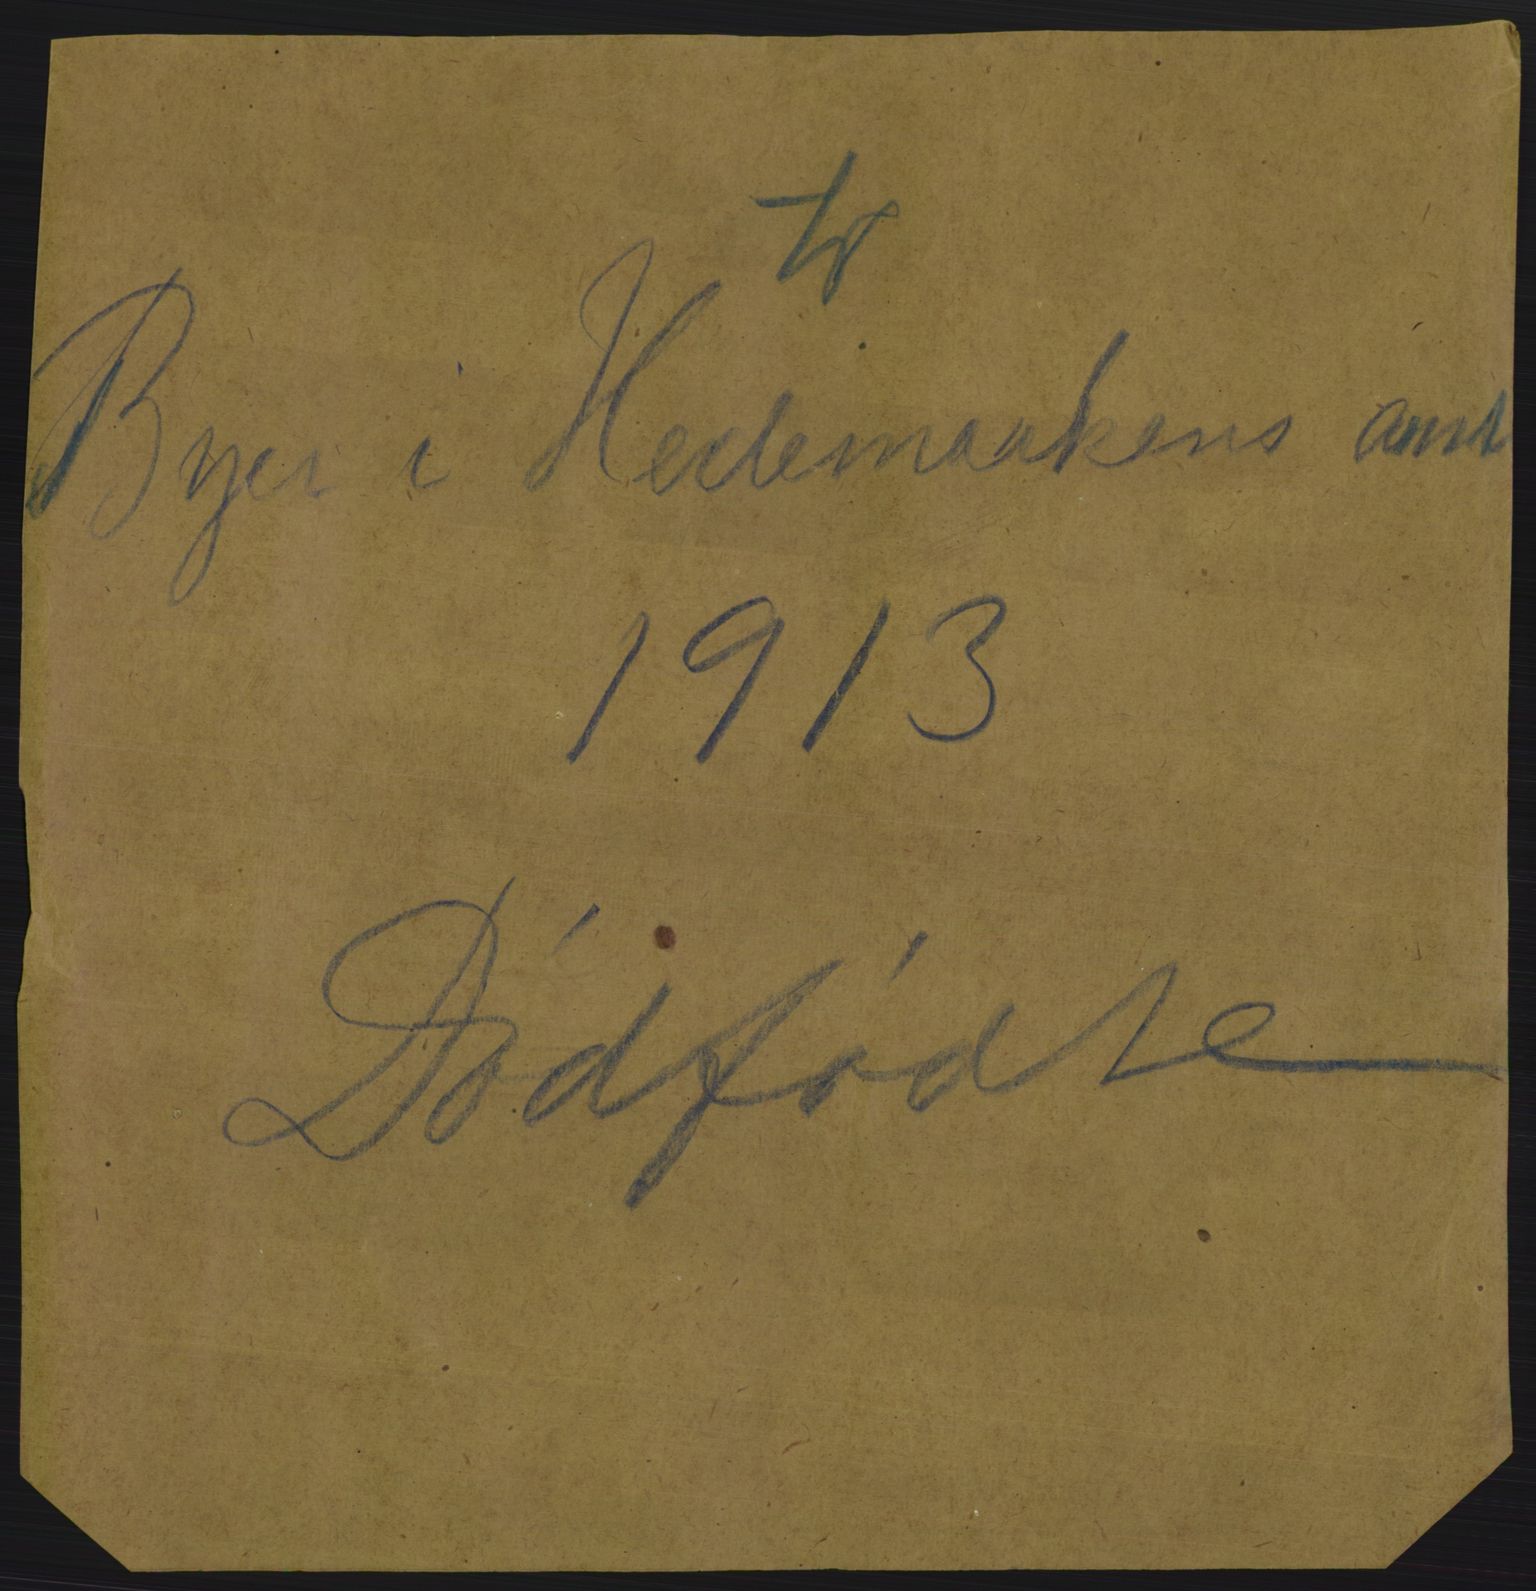 Byer i Hedemaakens amt
1913
Dódfódte